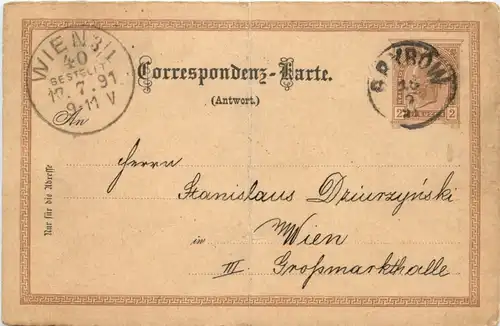 WIEN 3/1
40
BESTELLT
17.7.91
9-11 V
Correspondenz-Karte.
(Antwort.)
GRYBÓW
2 2
An
Herrn
Stanislaus Dziurzyński
in Wien
III Großmarkthalle
Nur für die Adresse